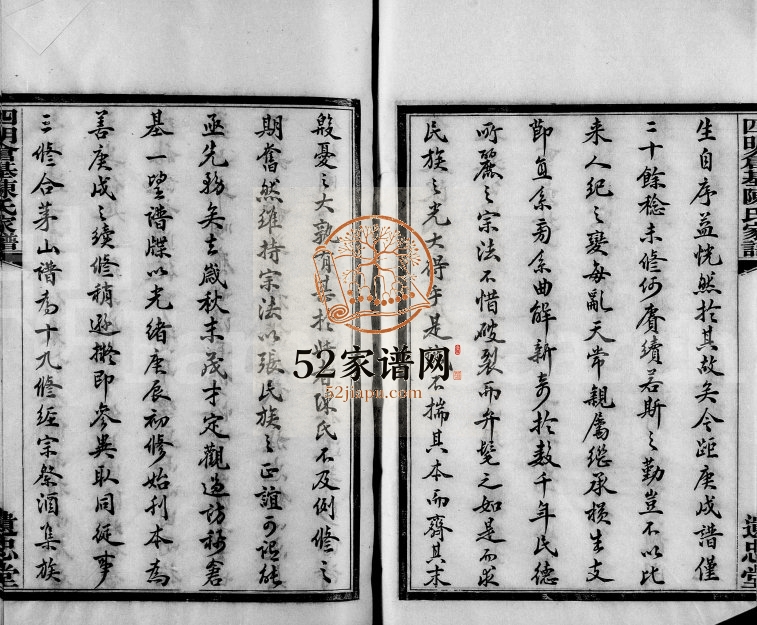 四明倉基陳氏家譜
遺忠堂
生自序益恍然於其故矣今距庚戌譜僅
二十餘稔未修何賡續若斯之勤豈不以比
来人纪之斁每亂天常親属继承損生支
節亘余旁余曲解新奇於数千年民德
所麗之宗法不惜破裂而弁髦之如是而求
民族之光大得乎是不揣其本而齊其末
殷憂之大孰有甚於陳氏不及例修之
期奮然維持宗法以張民族之正誼可謂能
亟先務矣去歲秋末茂才定觀過訪稱倉
基一望譜牒以光緒庚辰初修始刊本為
善庚戌之續修稍遜擬即参與取同從事
三修合茅山譜為十九修經宗祭酒集族
四明倉基陳氏家譜
遺忠堂
52家谱网
52jiapu.com